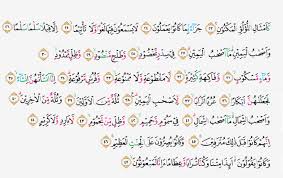 كَأَمْثَالِ اللُّؤْلُؤِ الْمَكْنُونِ ۝٢٣ جَزَاءً بِمَا كَانُوا يَعْمَلُونَ ۝٢٤ لَا يَسْمَعُونَ فِيهَا لَغْوًا وَلَا تَأْثِيمًا ۝٢٥ إِلَّا قِيلًا سَلَامًا سَلَامًا ۝٢٦
وَأَصْحَابُ الْيَمِينِ مَا أَصْحَابُ الْيَمِينِ ۝٢٧ فِي سِدْرٍ مَّخْضُودٍ ۝٢٨ وَطَلْحٍ مَّنضُودٍ ۝٢٩ وَظِلٍّ مَّمْدُودٍ ۝٣٠
وَمَاءٍ مَّسْكُوبٍ ۝٣١ وَفَاكِهَةٍ كَثِيرَةٍ ۝٣٢ لَّا مَقْطُوعَةٍ وَلَا مَمْنُوعَةٍ ۝٣٣ وَفُرُشٍ مَّرْفُوعَةٍ ۝٣٤ إِنَّا أَنشَأْنَاهُنَّ إِنشَاءً ۝٣٥
فَجَعَلْنَاهُنَّ أَبْكَارًا ۝٣٦ عُرُبًا أَتْرَابًا ۝٣٧ لِّأَصْحَابِ الْيَمِينِ ۝٣٨ ثُلَّةٌ مِّنَ الْأَوَّلِينَ ۝٣٩ وَثُلَّةٌ مِّنَ الْآخِرِينَ ۝٤٠
وَأَصْحَابُ الشِّمَالِ مَا أَصْحَابُ الشِّمَالِ ۝٤١ فِي سَمُومٍ وَحَمِيمٍ ۝٤٢ وَظِلٍّ مِّن يَحْمُومٍ ۝٤٣ لَّا بَارِدٍ وَلَا كَرِيمٍ ۝٤٤
إِنَّهُمْ كَانُوا قَبْلَ ذَٰلِكَ مُتْرَفِينَ ۝٤٥ وَكَانُوا يُصِرُّونَ عَلَى الْحِنثِ الْعَظِيمِ ۝٤٦
وَكَانُوا يَقُولُونَ أَئِذَا مِتْنَا وَكُنَّا تُرَابًا وَعِظَامًا أَإِنَّا لَمَبْعُوثُونَ ۝٤٧